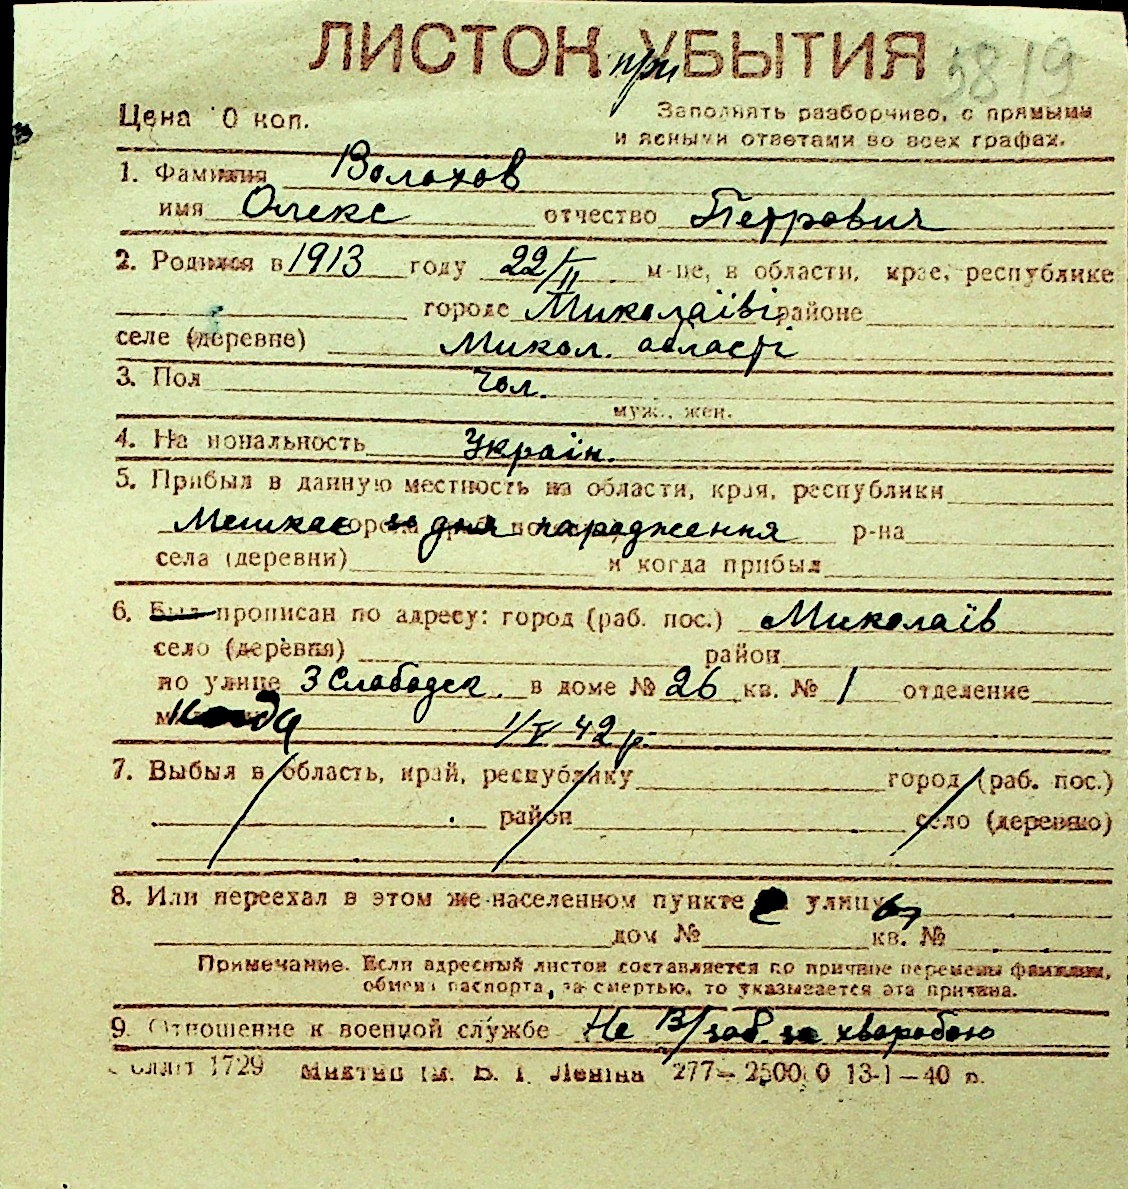 ЛИСТОК при УБЫТИЯ 3819
Цена 10 коп. Заполнять разборчиво, с прямыми
и ясными ответами во всех графах.
1. Фамилия Волохов
имя Олекс отчество Петрович
2. Родился в 1913 году 22/II м-це, в области, крае, республике
городе Миколаїві районе
селе (деревне) Микол. області
3. Пол чол.
муж., жен.
4. Национальность Україн.
5. Прибыл в данную местность из области, края, республики
Мешкає з дня народження р-на
села (деревни) и когда прибыл
6. Был прописан по адресу: город (раб. пос.) Миколаїв
село (деревня) район
по улице 3 Слободск. в доме № 26 кв. № 1 отделение
1/V 42 р.
7. Выбыл в область, край, республику город (раб. пос.)
район село (деревню)
8. Или переехал в этом же населенном пункте улицу
дом № кв. №
Примечание. Если адресный листок составляется по причине перемены фамилии,
обмена паспорта, за смертью, то указывается эта причина.
9. Отношение к военной службе Не в/зоб. за хваробою
1729 Миктип ім. В. І. Леніна 277—2500 0 13-I—40 р.